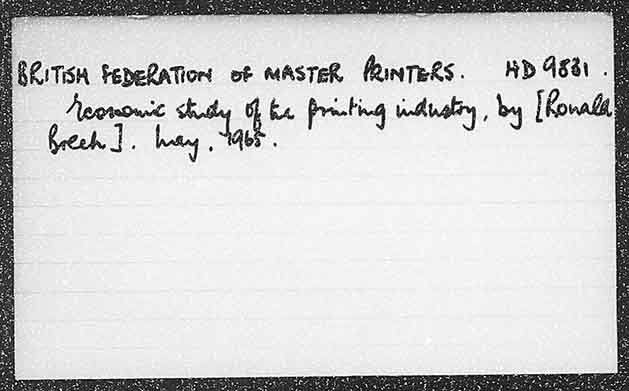 BRITISH FEDERATION OF MASTER PRINTERS. HD 9831.
Economic study of the printing industry, by [Ronald
Brech]. May, 1965.